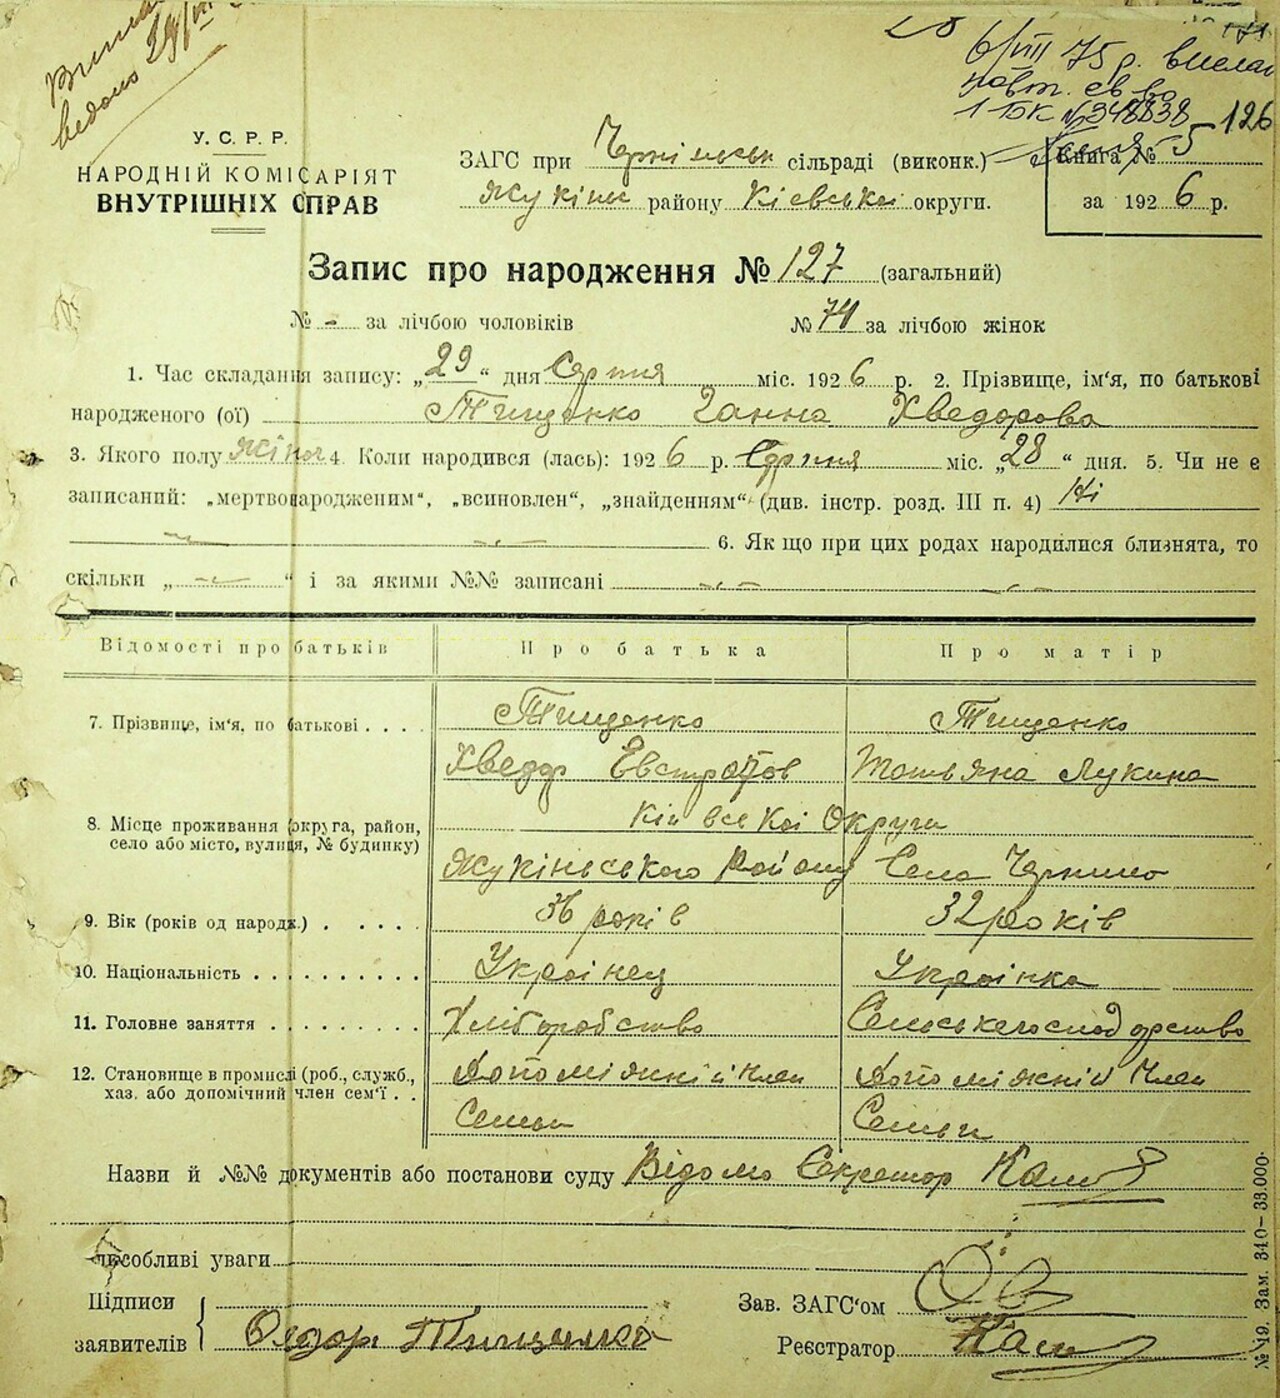 28
6/III 75 р. вислан
повт. св во
1 БК № 348838
126
У. С. Р. Р.
НАРОДНІЙ КОМІСАРІЯТ
ВНУТРІШНІХ СПРАВ
ЗАГС при сільраді (виконк.)
Жукінс району Кіевської округи.
Книга № 5
за 1926 р.
Запис про народження № 127 (загальний)
№ - за лічбою чоловіків № 74 за лічбою жінок
1. Час складання запису: „29“ дня Серпня міс. 1926 р. 2. Прізвище, ім‘я, по батькові
народженого (ої) Тищенко Ганна Хведорова
3. Якого полу жіноч 4. Коли народився (лась): 1926 р. Серпня міс. „28“ дня. 5. Чи не є
записаний: „мертвонародженим“, „всиновлен“, „знайденням“ (див. інстр. розд. III п. 4) Ні
6. Як що при цих родах народилися близнята, то
скільки „ “ і за якими №№ записані
Відомості про батьків Про батька Про матір
7. Прізвище, ім‘я, по батькові . . . . Тищенко Тищенко
Хведор Евстратов Татьяна Лукина
8. Місце проживання (округа, район, Киівськоі Округи
село або місто, вулиця, № будинку) Жукінського Району Села Чернино
9. Вік (років од народж.) . . . . . 36 років 32 років
10. Національність . . . . . . . . . . Украінец Украінка
11. Головне заняття . . . . . . . . . Хліборобство Сельськегосподарство
12. Становище в промислі (роб., служб., Допоміжній член Допоміжній член
хаз. або допомічний член сем‘ї . . Семьи Семьи
Назви й №№ документів або постанови суду Відомо Секретар
Особливі уваги
Підписи
заявителів Федор Тищенко
Зав. ЗАГС‘ом
Реєстратор
№ 19. Зам. 340–33.000.